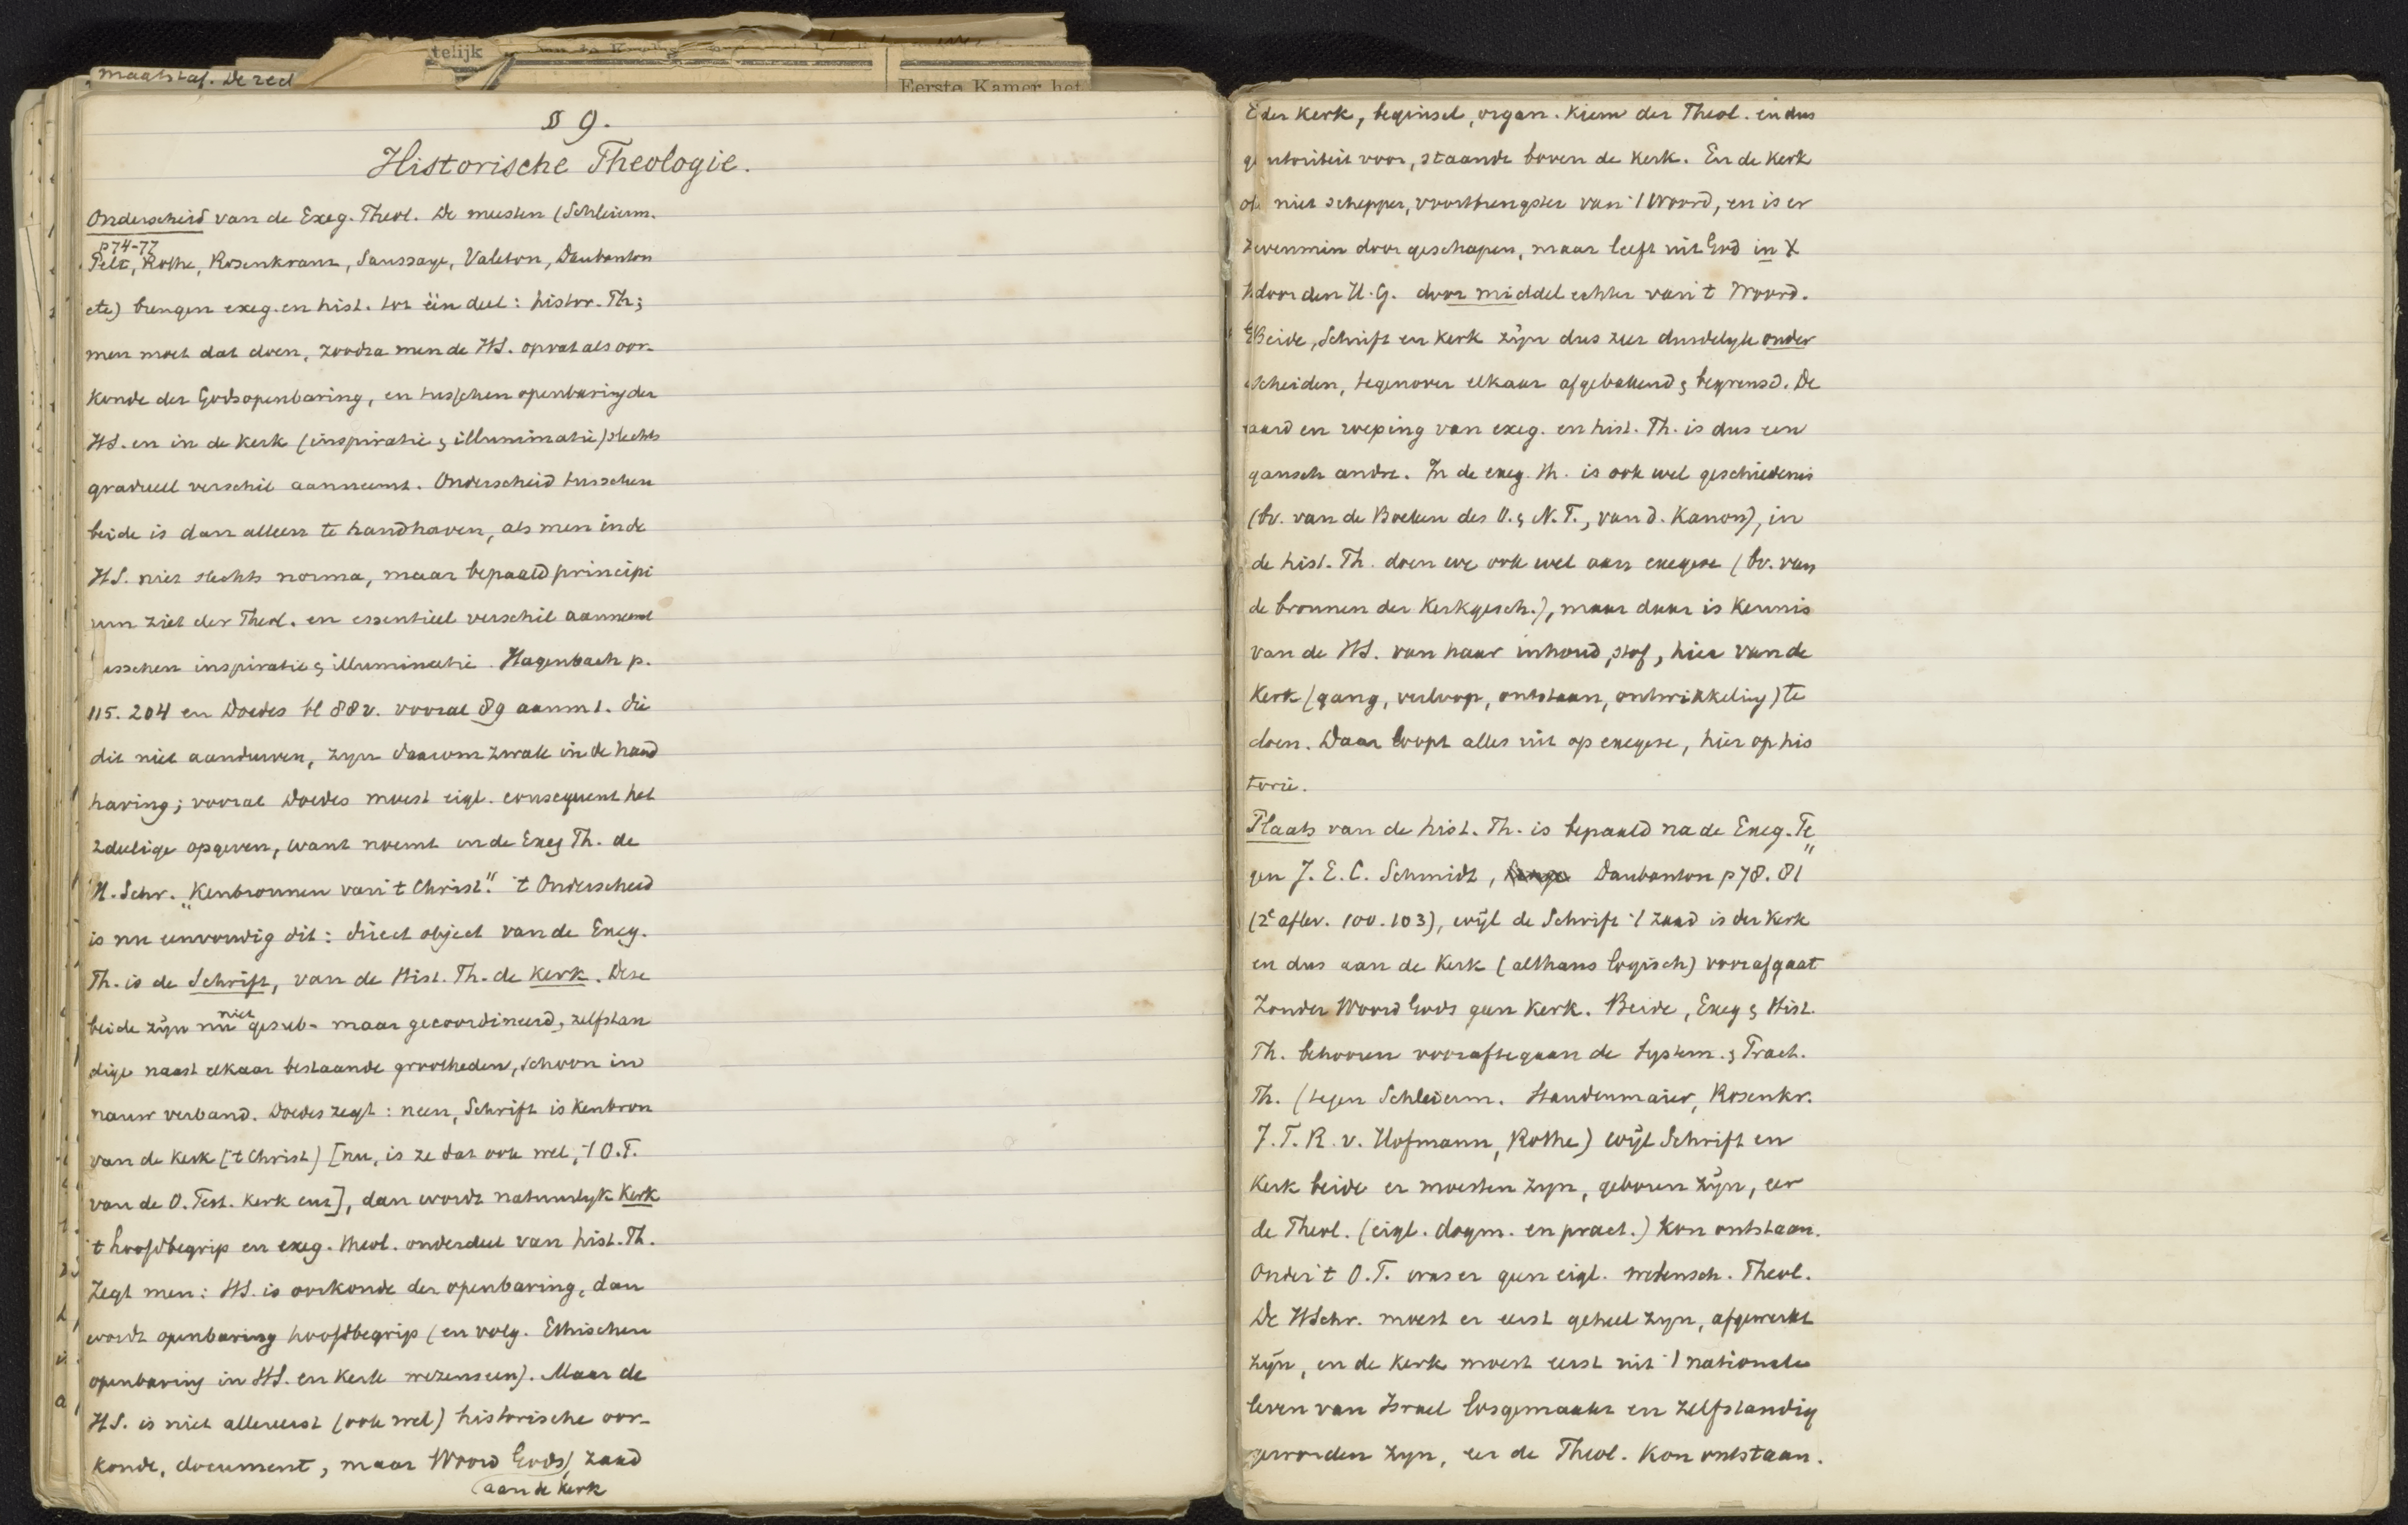 maatstaf. De red
telijk
Eerste Kamer het
§ 9.
Historische Theologie.
Onderscheid van de Exeg. Theol. De meesten (Schleierm.
p 74-77
Pelt, Rothe, Rosenkranz, Saussaye, Valeton, Daubanton
etc) brengen exeg. en hist. tot één deel: histor. Th;
men moet dat doen, zoodra men de HS. opvat als oor-
konde der Godsopenbaring, en tusschen openbaring der
HS. en in de Kerk (inspiratie & illuminatie) slechts
gradueel verschil aanneemt. Onderscheid tusschen
beide is dan alleen te handhaven, als men in de
HS. niet slechts norma, maar bepaald principi
um ziet der Theol. en essentieel verschil aanneemt
usschen inspiratie & illuminatie. Hagenbach p.
115. 204 en Doedes bl 88v. vooral 89 aanm 1. die
dit niet aandurven, zyn daarom zwak in de hand
having; vooral Doedes moest eigl. consequent het
2deelige opgeven, want noemt in de Exeg Th. de
H. Schr. "Kenbronnen van 't Christ." 't Onderscheid
is nu eenvoudig dit: direct object van de Exeg.
Th. is de Schrift, van de Hist. Th. de Kerk. Deze
beide zijn nu niet gesub- maar gecoordineerd, zelfstan
dige naast elkaar bestaande grootheden, schoon in
nauw verband. Doedes zegt: neen, Schrift is Kenbron
van de Kerk ('t Christ) [nu, is ze dat ook wel, 't O.T.
van de O. Test. Kerk enz], dan wordt natuurlyk Kerk
't hoofdbegrip en exeg. theol. onderdeel van hist. Th.
Zegt men: HS. is oorkonde der openbaring, dan
wordt openbaring hoofdbegrip (en volg. Ethischen
openbaring in HS. en Kerk wezenseen). Maar de
H.S. is niet allereerst (ook wel) historische oor-
konde, document, maar Woord Gods, zaad
aan de Kerk
der Kerk, beginsel, organ. Kiem der Theol. en dus
autoriteit voor, staande boven de Kerk. En de Kerk
niet schepper, voortbrengster van 't Woord, en is er
evenmin door geschapen, maar leeft uit God in X
door den H.G. door middel echter van 't Woord.
Beide, Schrift en Kerk zijn dus zeer duidelyk onder
scheiden, tegenover elkaar afgebakend & begrensd. De
aard en roeping van exeg. en hist. Th. is dus een
gansch andre. In de exeg. Th. is ook wel geschiedenis
(bv. van de Boeken des O. & N.T., van d. Kanon), in
de hist. Th. doen we ook wel aan exegese (bv. van
de bronnen der Kerkgesch.), maar daar is kennis
van de HS. van haar inhoud, stof, hier van de
Kerk (gang, verloop, ontstaan, ontwikkeling) te
doen. Daar loopt alles uit op exegese, hier op his
torie.
Plaats van de hist. Th. is bepaald na de Exeg. Te
gen J. E. C. Schmidt, Daubanton p 78. 81
(2e aflev. 100. 103), wijl de Schrift 't zaad is der Kerk
en dus aan de Kerk (althans logisch) voorafgaat
Zonder Woord Gods geen Kerk. Beide, Exeg & Hist.
Th. behooren vooraftegaan de System. & Pract.
Th. (tegen Schleierm. Staudenmaier, Rosenkr.
J. T. R. v. Hofmann, Rothe) wijl Schrift en
Kerk beide er moesten zyn, geboren zijn, eer
de Theol. (eigl. dogm. en pract.) kon ontstaan.
Onder 't O.T. was er geen eigl. wetensch. Theol.
De HSchr. moest er eerst geheel zyn, afgewerkt
zijn, en de Kerk moest eerst uit 't nationale
leven van Israel losgemaakt en zelfstandig
geworden zyn, eer de Theol. kon ontstaan.